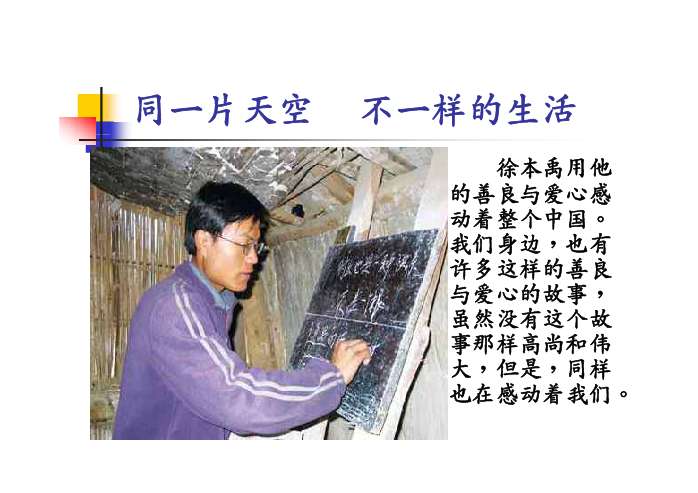 同一片天空 不一样的生活
徐本禹用他
的善良与爱心感
动着整个中国。
我们身边，也有
许多这样的善良
与爱心的故事，
虽然没有这个故
事那样高尚和伟
大，但是，同样
也在感动着我们。